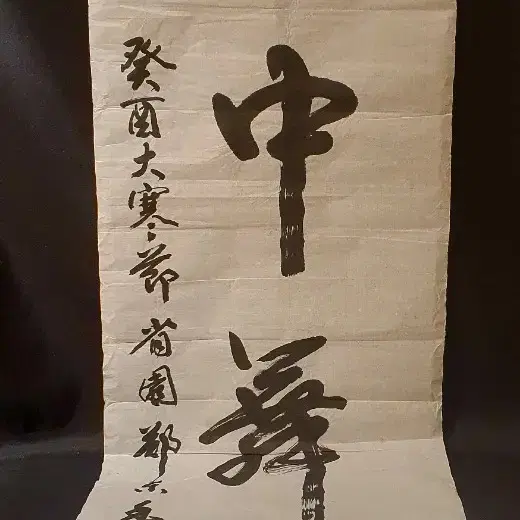 中舞
癸酉大寒節省園鄭